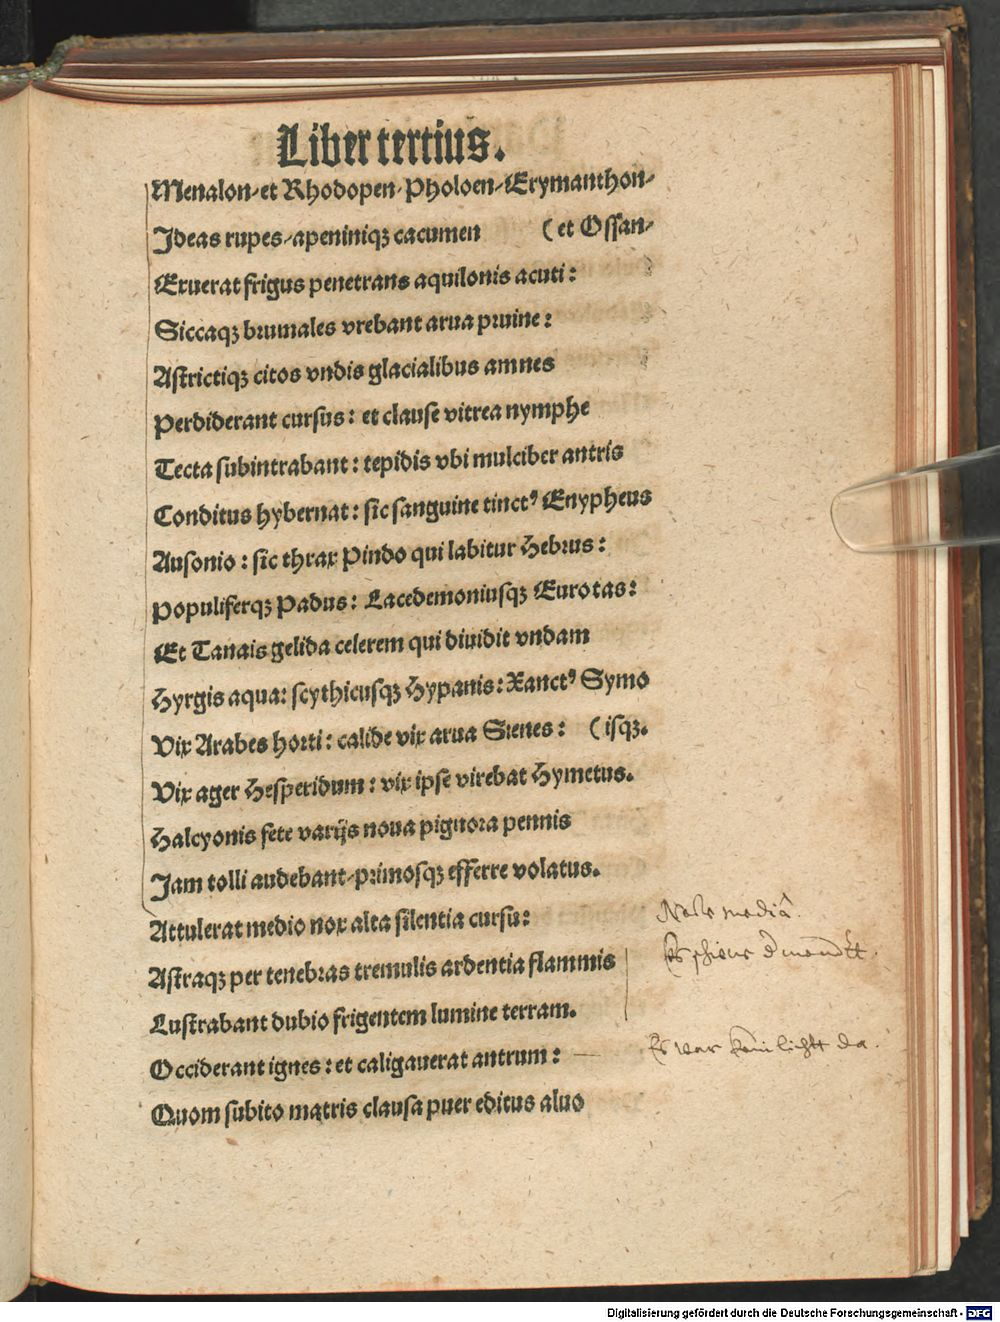 Liber tertius.
Menalon/et Rhodopen/Pholoen/Erymanthon/
Ideas rupes/apeniniqꝫ cacumen (et Ossan/
Eruerat frigus penetrans aquilonis acuti:
Siccaqꝫ brumales vrebant arua pruine:
Astrictiqꝫ citos vndis glacialibus amnes
Perdiderant cursus: et clause vitrea nymphe
Tecta subintrabant: tepidis vbi mulciber antris
Conditus hybernat: sic sanguine tinctꝰ Enypheus
Ausonio: sic thrax Pindo qui labitur Hebrus:
Populiferqꝫ Padus: Lacedemoniusqꝫ Eurotas:
Et Tanais gelida celerem qui diuidit vndam
Hyrgis aqua: scythicusqꝫ Hypanis: Xanctꝰ Symo
Vix Arabes horti: calide vix arua Sienes: (isqꝫ.
Vix ager Hesperidum: vix ipse virebat Hymetus.
Halcyonis fete varijs noua pignora pennis
Jam tolli audebant/primosqꝫ efferre volatus.
Attulerat medio nox alta silentia cursu:
Astraqꝫ per tenebras tremulis ardentia flammis
Lustrabant dubio frigentem lumine terram.
Occiderant ignes: et caligauerat antrum:
Es war kein lichtt da.
Quom subito matris clausa puer editus aluo
Digitalisierung gefördert durch die Deutsche Forschungsgemeinschaft - DFG